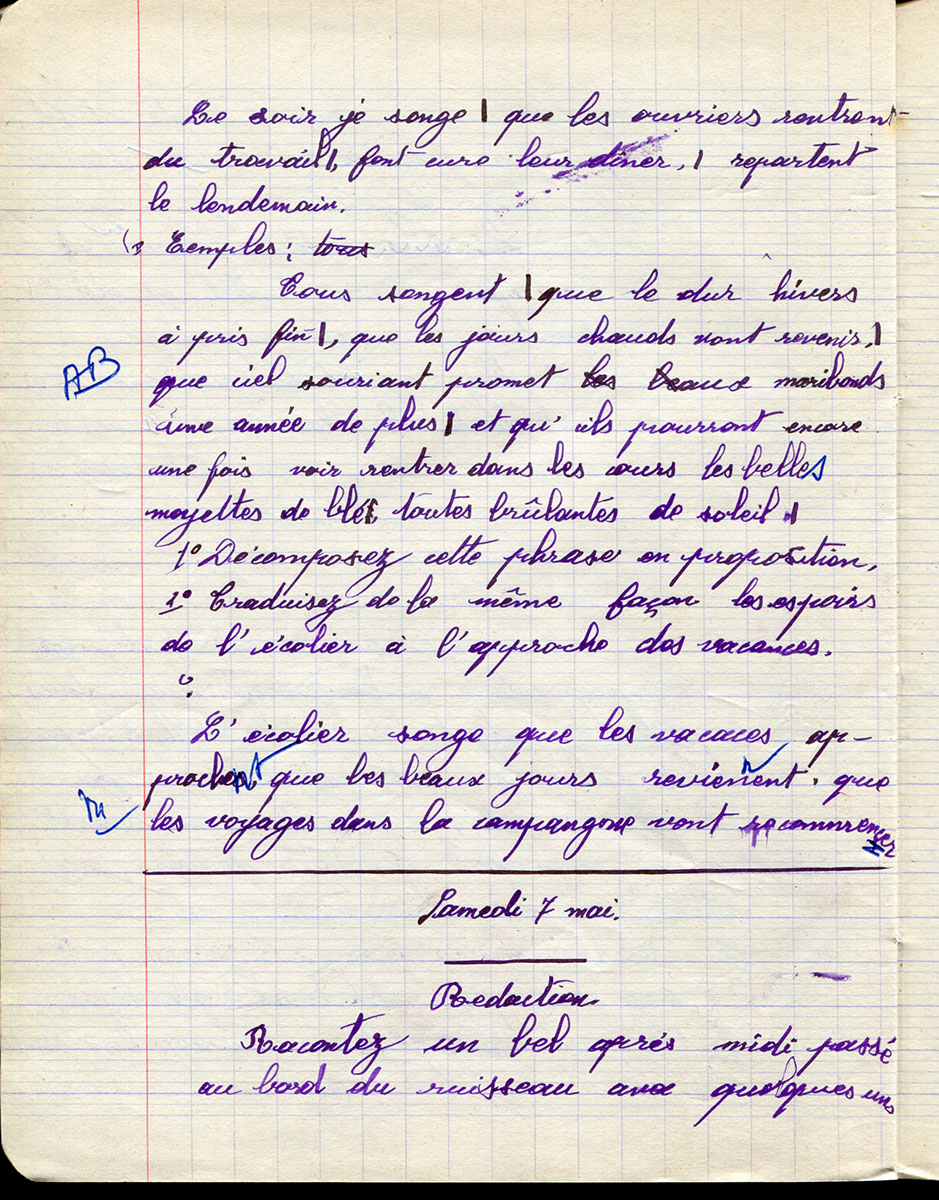 Le soir je songe | que les ouvriers rentrent
du travail |, font cure leur dîner, | repartent
le lendemain.
Exemples : tous
Tous songent | que le dur hivers
à pris fin |, que les jours chauds vont revenir, |
que ciel souriant promet les beaux moribonds
une année de plus | et qu'ils pourront encore
AB
une fois voir rentrer dans les cours les belles
moyettes de blé | toutes brûlantes de soleil. |
1° Décomposez cette phrase en proposition,
2° Traduisez de la même façon les espoirs
de l'écolier à l'approche des vacances.
L'écolier songe que les vacaces ap-
prochent que les beaux jours reviennent. que
les voyages dans la campangone vont recommrencer
Samedi 7 mai.
Redaction.
Racontez un bel après midi passé
au bord du ruisseau avec quelques uns